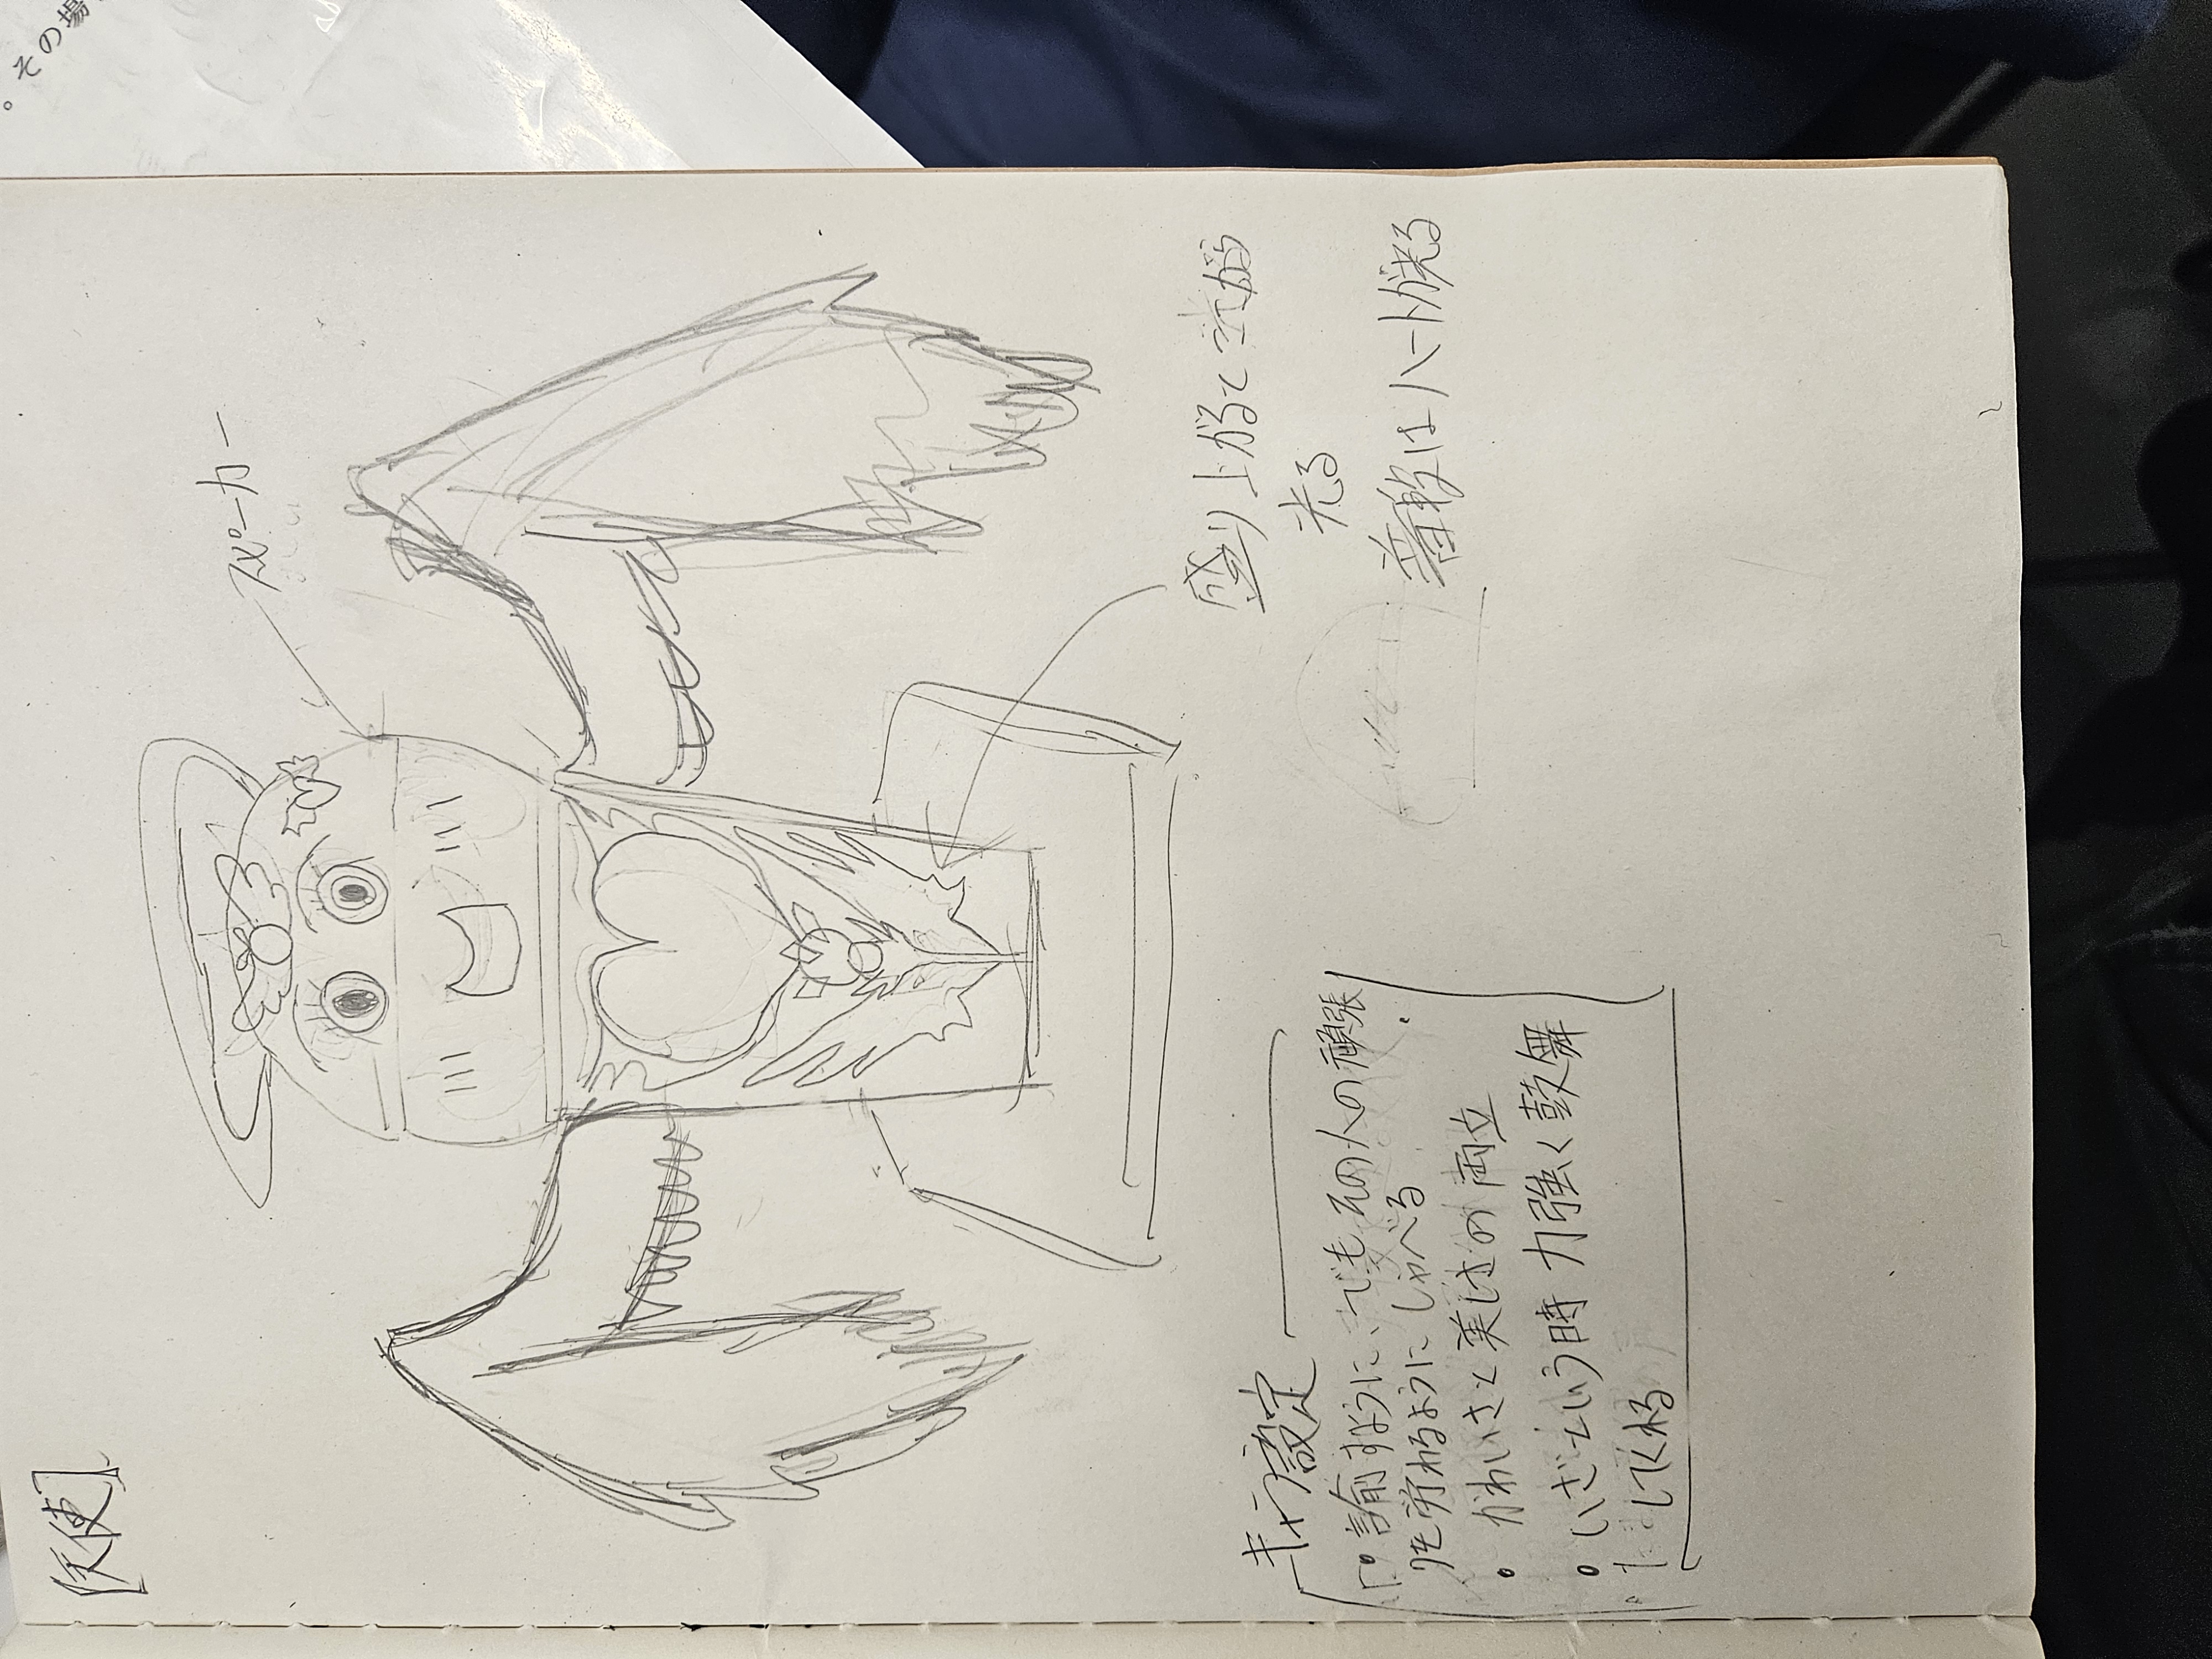 [天使]
スピーカー
盛り上がると
光る
普段はハートが光る
キャラ設定
諭すように、でもその人の頑張
りを労わるようにしゃべる
かわいさと美しさの両立
いざという時 力強く鼓舞
してくれる
。その場